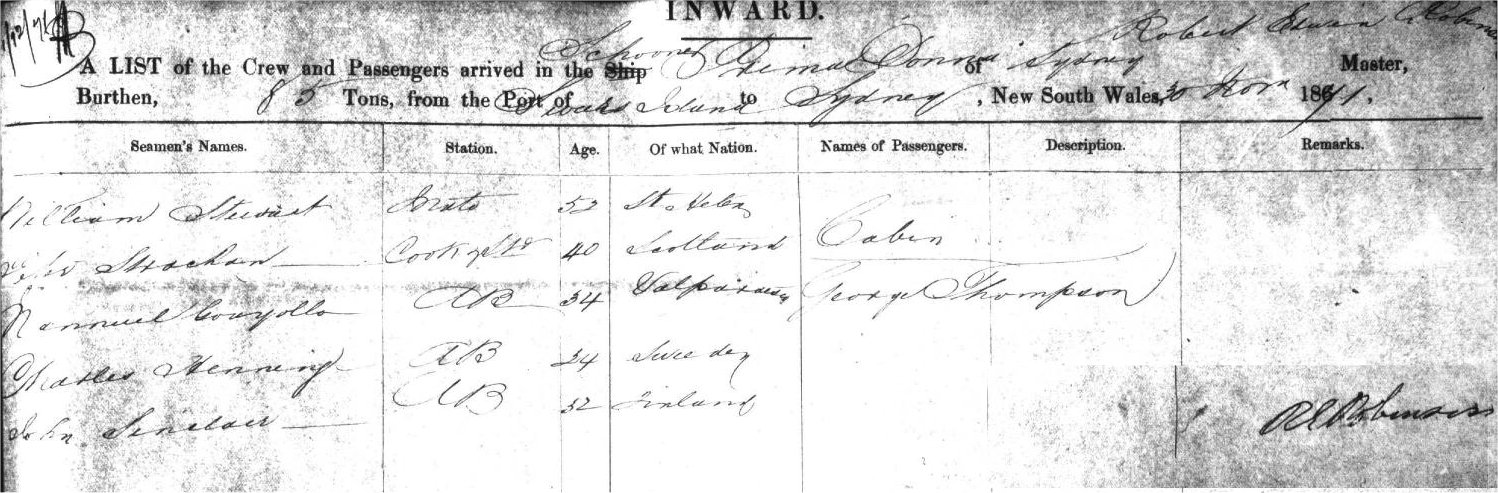 INWARD.
Schooner Prima Donna Sydney Robert Edwin Robinson
A LIST of the Crew and Passengers arrived in the Ship of Master,
Burthen, 85 Tons, from the Port of Island to Sydney, New South Wales, 30 Novr 1871.
Seamen's Names. Station. Age. Of what Nation. Names of Passengers. Description. Remarks.
William Stewart Mate 52 St. Helena
Strachan Cook & Std 40 Scotland Cabin
AB 34 Valparaiso George Thompson
Charles Henning AB 24 Sweden
John Sinclair AB 32 Finland
R E Robinson